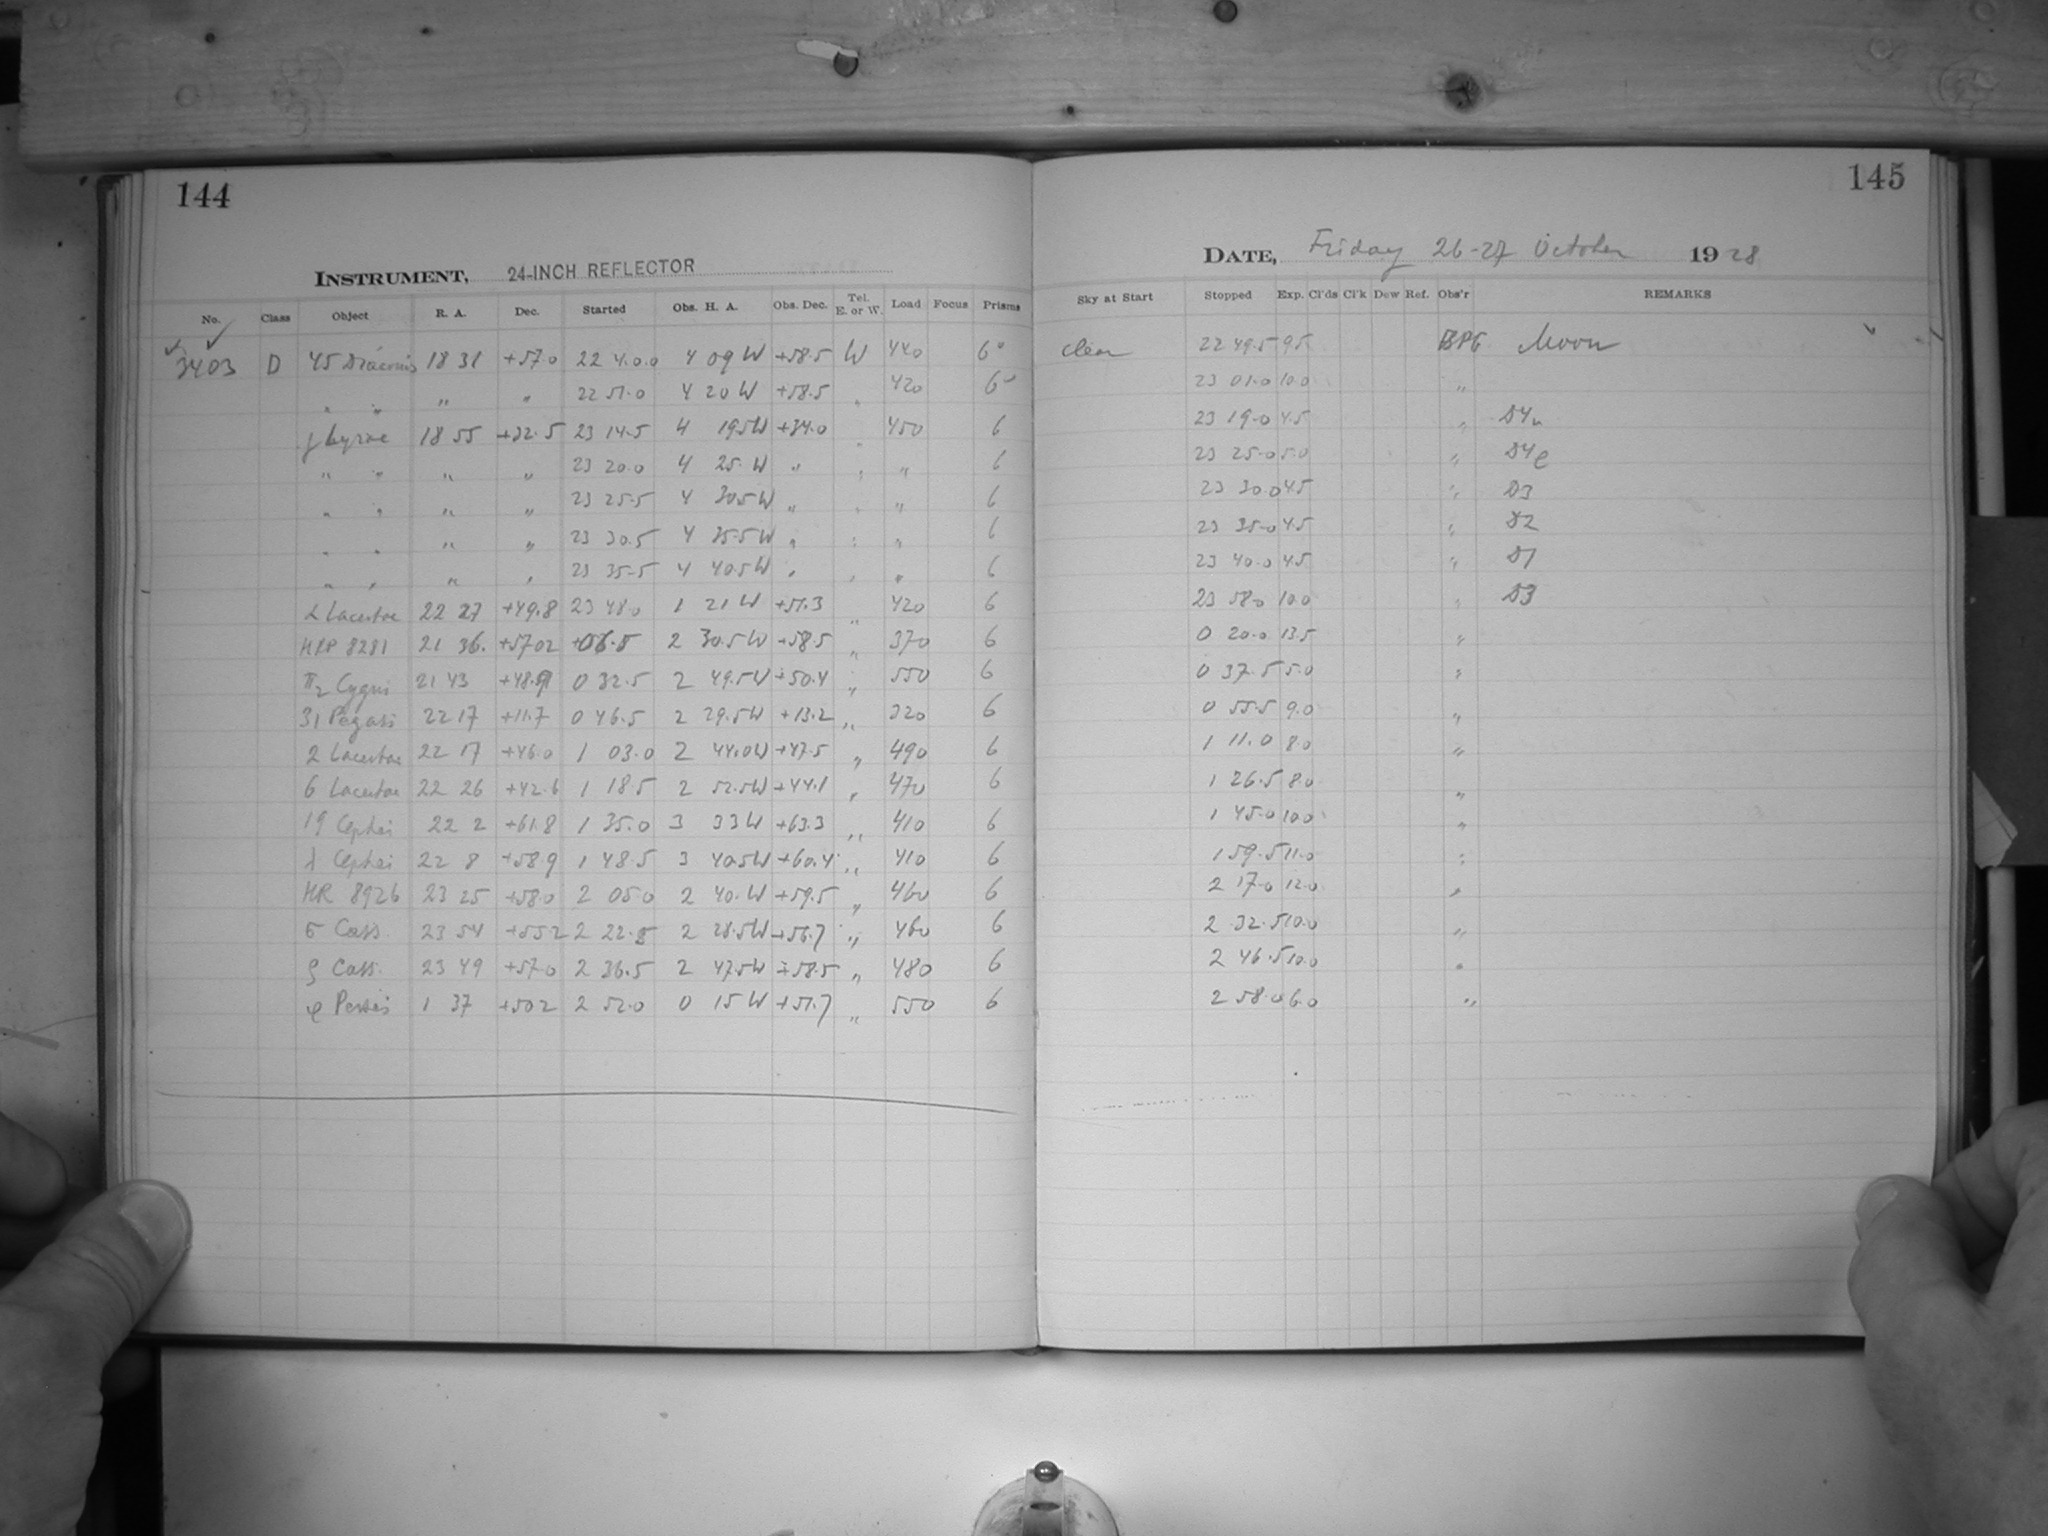 144
INSTRUMENT, 24-INCH REFLECTOR
No. Class Object R. A. Dec. Started Obs. H. A. Obs. Dec. Tel. E. or W. Load Focus Prisms
3403 D 45 Draconis 18 31 +57.0 22 40.0 4 09 W +58.5 W 440 6
" " " " 22 51.0 4 20 W +58.5 " 420 6
γ Lyrae 18 55 +32.5 23 14.5 4 19.5W +34.0 " 450 6
" " " " 23 20.0 4 25. W " " " 6
" " " " 23 25.5 4 30.5W " " " 6
" " " " 23 30.5 4 35.5W " " " 6
" " " " 23 35.5 4 40.5W " " " 6
α Lacertae 22 27 +49.8 23 48.0 1 21 W +51.3 " 420 6
8281 21 36. +57.02 06.5 2 30.5W +58.5 " 370 6
π2 Cygni 21 43 0 32.5 2 49.5W +50.4 " 550 6
31 Pegasi 22 17 +11.7 0 46.5 2 29.5W +13.2 " 320 6
2 Lacertae 22 17 +46.0 1 03.0 2 44.0W +47.5 " 490 6
6 Lacertae 22 26 +42.6 1 18.5 2 52.5W +44.1 " 470 6
19 Cephei 22 2 +61.8 1 35.0 3 33 W +63.3 " 410 6
λ Cephei 22 8 +58.9 1 48.5 3 40.5W +60.4 " 410 6
HR 8926 23 25 +58.0 2 05.0 2 40. W +59.5 " 460 6
σ Cass. 23 54 +55.2 2 22.5 2 28.5W +56.7 " 460 6
ρ Cass. 23 49 +57.0 2 36.5 2 47.5W +58.5 " 480 6
φ Persei 1 37 +50.2 2 52.0 0 15 W +51.7 " 550 6
145
DATE, Friday 26-27 October 1928
Sky at Start Stopped Exp. Cl'ds Cl'k Dew Ref. Obs'r REMARKS
clear 22 49.5 9.5 BPG Moon
23 01.0 10.0 "
23 19.0 4.5 "
23 25.0 5.0 "
23 30.0 4.5 " D3
23 35.0 4.5 " D2
23 40.0 4.5 " D1
23 58.0 10.0 " D3
0 20.0 13.5 "
0 37.5 5.0 "
0 55.5 9.0 "
1 11.0 8.0 "
1 26.5 8.0 "
1 45.0 10.0 "
1 59.5 11.0 "
2 17.0 12.0 "
2 32.5 10.0 "
2 46.5 10.0 "
2 58.0 6.0 "